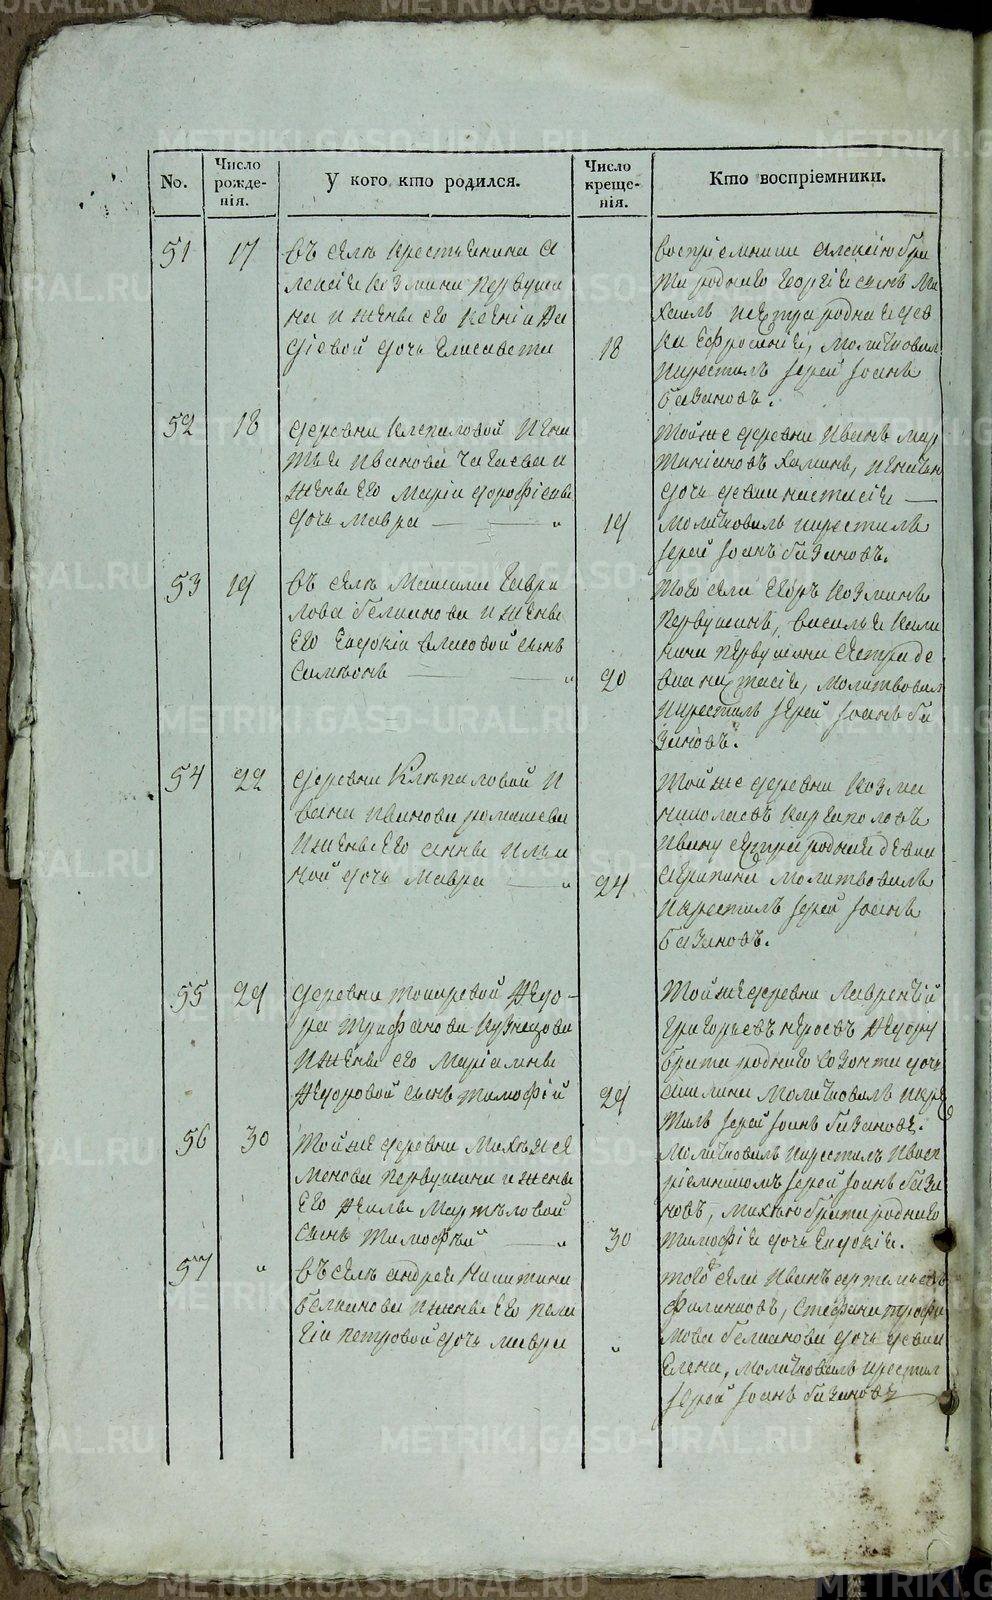 No.
Число рожде-нія.
У кого кто родился.
Число креще-нія.
Кто воспріемники.
51
17
Въ селѣ крестьянина А
лексія Козмина Первуши
на и жены его Ксеніи
дочь Елисавета
18
воспріемники Алексію бра
та роднаго Георгія сынъ Ми
хаилъ и сестра родная дѣв
ка Ефросинія, молитвовал
и крестилъ Іерей Іоаннъ
Базановъ.
52
18
деревни Клепаловой Игна
тья Иванова и
жены его Маріи Дорофѣевы
дочь Мавра
19
Тойже деревни Иванъ Мар
тиніановъ
дочь девка Настасія
молитвовалъ и крестилъ
Іерей Іоаннъ Базановъ.
53
19
Въ селѣ Максима Гаври
лова Белканова и жены
его Евдокіи Власовой сынъ
Симеонъ
20
Того села Егоръ Козминъ
Первушинъ, Василья
Первушина сестра де
вка Настасія, молитвовал
и крестилъ Іерей Іоаннъ Ба
зановъ.
54
22
деревни Клепаловой И
вана Иванова Ромашева
и жены его Анны Ильи
ной дочь Мавра
24
Тойже деревни Козма
Николаевъ Каргаполовъ
Ивану сестра родная девка
Агрипина молитвовалъ
и крестилъ Іерей Іоаннъ
Базановъ.
55
29
деревни Токаревой Федо-
ра Трифанова Кузнецова
и жены его Маріамны
Федоровой сынъ Тимофій
29
Тойже деревни Лаврентій
Григорьевъ Федору
брата роднаго Созонта дочь
Акилина молитвовалъ и кре
тилъ Іерей Іоаннъ Базановъ.
56
30
Тойже деревни Михѣя Се
менова Первушина и жены
его Феклы Мартѣловой
сынъ Тимофѣй
30
молитвовалъ и крестилъ и восп
ріемникомъ Іерей Іоаннъ База
новъ, Михѣю брата роднаго
Тимофія дочь Евдокія.
57
"
Въ селѣ Андрея Никитина
Белканова и жены его Пела
гіи Петровой дочь Мавра
"
того села Иванъ Артемьевъ
Филинковъ, Стефана Трофи
мова Белканова дочь девка
Елена, молитвовалъ и крестил
Іерей Іоаннъ Базановъ
METRIKI.GASO-URAL.RU